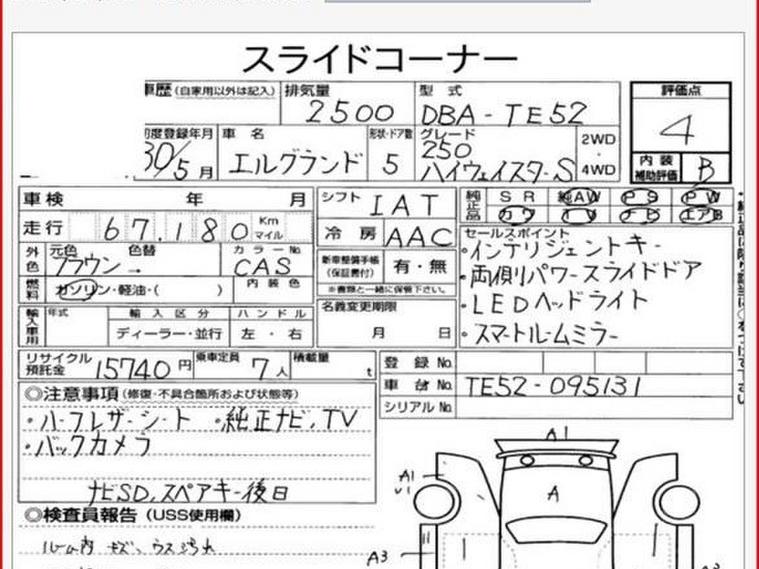 スライドコーナー
車歴 (自家用以外は記入) 排気量 型式 評価点
2500 DBA-TE52 4
初度登録年月 車名 形状・ドア数 グレード 2WD
30/5月 エルグランド 5 250 ハイウェイスターS ・4WD
内装補助評価 B
車検 年 月 シフト IAT 純正品 SR 純AW PS PW
走行 67,180 Km マイル 冷房 AAC カワ ナビ エアB
外色 元色 色替 カラーNo. セールスポイント
ブラウン→ CAS 新車整備手帳(保証書付) 有・無 ・インテリジェントキー
燃料 ガソリン・軽油・( ) 内装色 ※書類と一緒に保管下さい。 ・両側パワースライドドア
輸入車用 年式 輸入区分 ハンドル 名義変更期限 ・LEDヘッドライト
ディーラー・並行 左・右 月 日 ・スマートルームミラー
リサイクル預託金 15740円 乗車定員 7人 積載量 t 登録No.
車台No. TE52-095131
シリアルNo.
◎注意事項 (修復・不具合箇所および状態等)
・ハーフレザーシート ・純正ナビ、TV
・バックカメラ
ナビSD、スペアキー後日
◎検査員報告 (USS使用欄)
ルーム内 キズ、ウス汚れ
A1
A1
A
A3